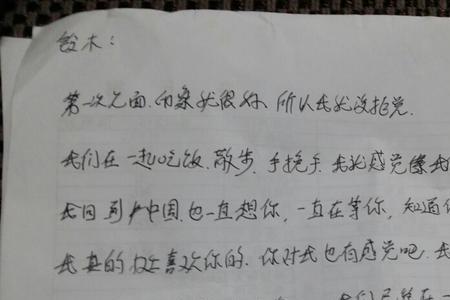 铃木：
第一次见面、印象就很好、所以我就没拒绝.
我们在一起吃饭、散步、手挽手、我就感觉像我
我回到中国也一直想你，一直在等你，知道
我真的好喜欢你的、你对我也有感觉吧、我